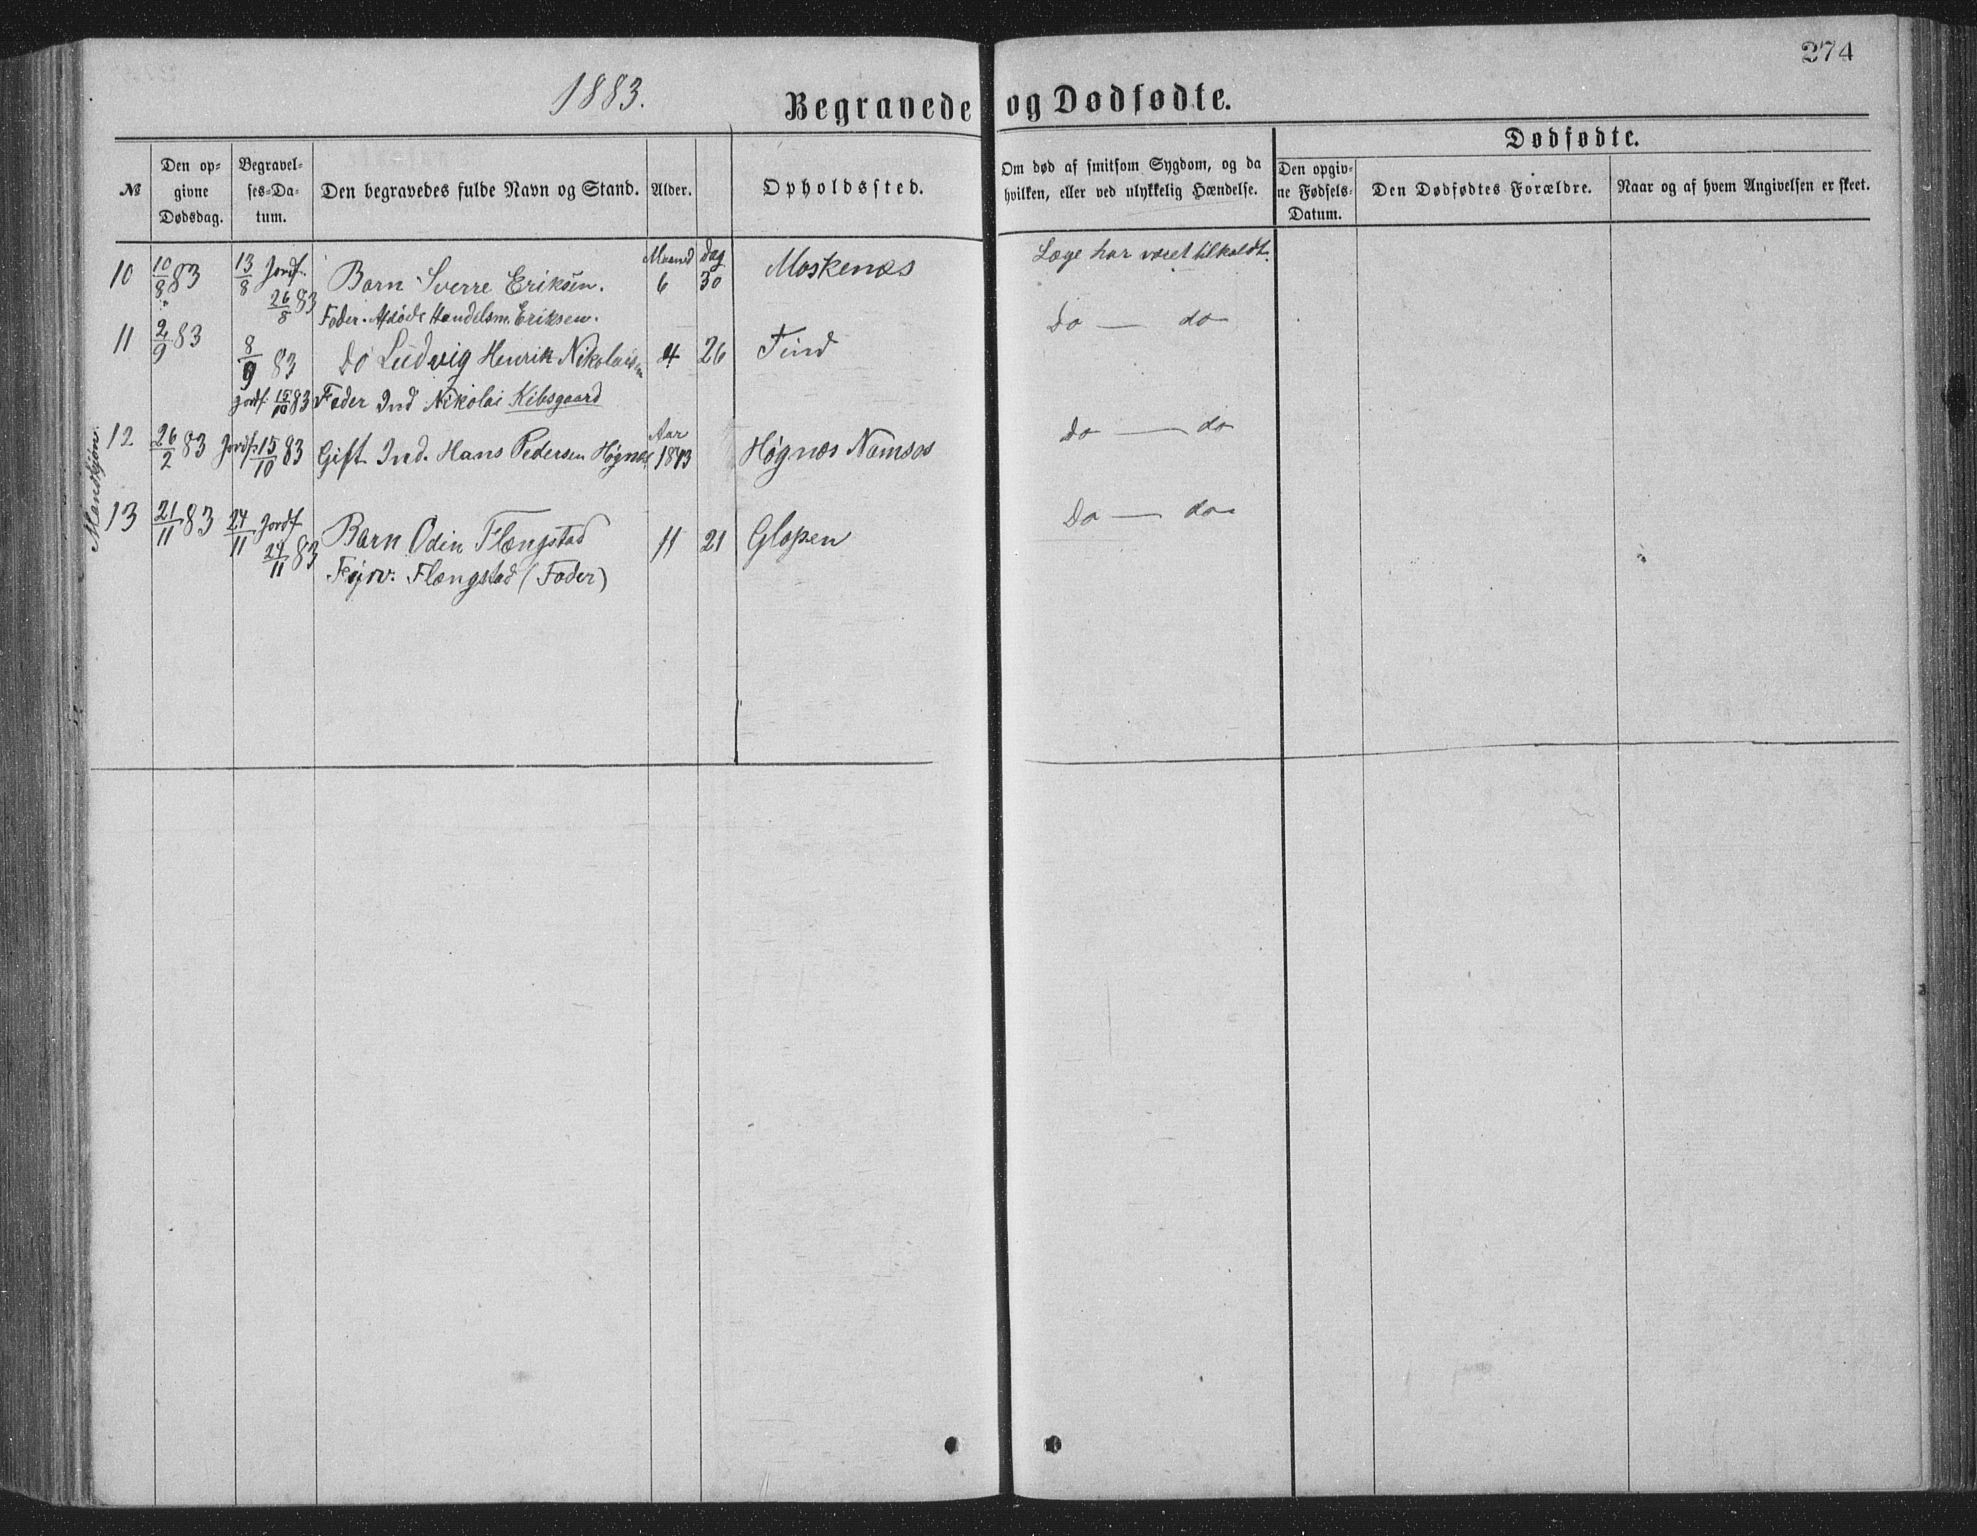 274
1883.
Begravede og Dødfødte.
Dødfødte.
№
Den op-
givne
Dødsdag.
Begravel-
ses-Da-
tum.
Den begravedes fulde Navn og Stand.
Alder.
Opholdssted.
Om død af smitsom Sygdom, og da
hvilken, eller ved ulykkelig Hændelse.
Den opgiv-
ne Fødsels-
Datum.
Den Dødfødtes Forældre.
Naar og af hvem Angivelsen er skeet.
Maaned Dag
10 10/8 83 13/8 Jordf. 26/8 83 Barn Sverre Eriksen. 6 30 Moskenæs Læge har været tilkaldt.
Fader. Afdøde Handelsm. Eriksen.
11 2/9 83 8/9 83 Do Ludvig Henrik Nikolaisen 4 26 Tind Do — do
Jordf. 15/10 83 Fader Ind Nikolai Kibsgaard
Aar
12 26/2 83 Jordf. 15/10 83 Gift. Ind. Hans Pedersen Høgnæs 1813 Høgnæs Namsos Do — do
13 21/11 83 24/11 Jordf 24/11 83 Barn Odin Flængstad 11 21 Glopen Do — do
Fyrv. Flængstad (Fader)